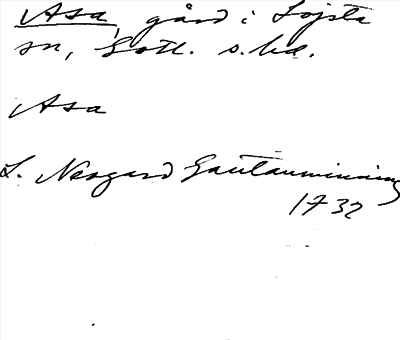 Asa, gård i Lojsta
sn, Gotl. s. hd.
Asa
L. Neogard Gautauminning
1732